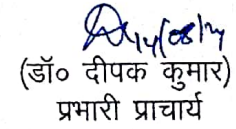 14/08/24
(डॉ० दीपक कुमार)
प्रभारी प्राचार्य